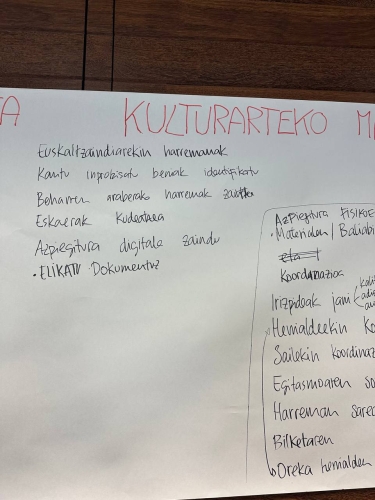 KULTURARTEKO
Euskaltzaindiarekin harremanak
Kantu inprobisatu berriak identifikatu
Beharren araberako harremak
Eskaerak Kudeatzea
Azpiegitura digitala zaindu
• ELIKATU Dokumentuz
AZPIEGITURA FISIKOE
• Materialen / Baliabi
eta
Koordinazioa
Irizpideak jarri
Herrialdeekin Ko
Sailekin Koordinaz
Egitasmoaren so
Harreman sarea
Bilketaren
Oreka herrialdeen